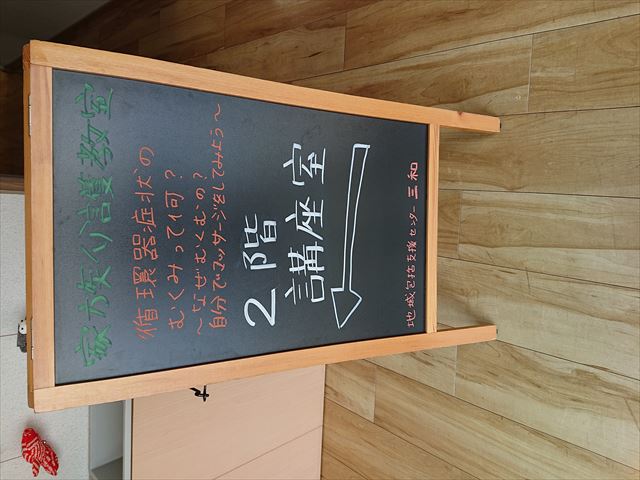 家族介護教室
循環器症状の
むくみって何?
～なぜむくむの?
自分でマッサージをしてみよう～
2階
講座室
地域包括支援センター三和